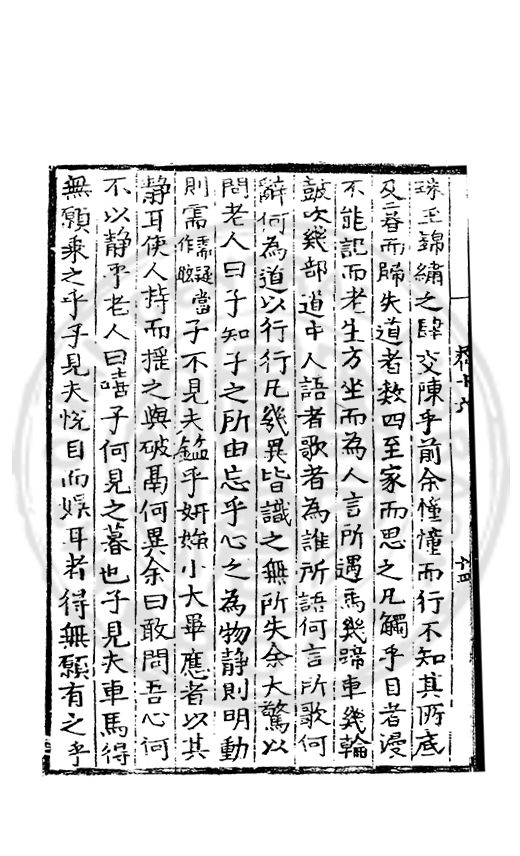 珠玉錦繡之肆交陳乎前余憧憧而行不知其所底
及暮而歸失道者数四至家而思之凡觸乎目者漫
不能記而老生方坐而為人言所遇馬幾蹄車幾輪
鼓吹幾部道中人語者歌者為誰所語何言所歌何
辭何為道以行行凡幾異皆識之無所失余大驚以
問老人曰子知子之所由忘乎心之為物静則明動
則需需疑當作眩子不見夫鑑乎妍媸小大畢應者以其
静耳使人持而摇之與破鬲何異余曰敢問吾心何
不以静乎老人曰嘻子何見之暮也子見夫車馬得
無願乘之乎子見夫悅目而娛耳者得無願有之乎
卷十六
十四